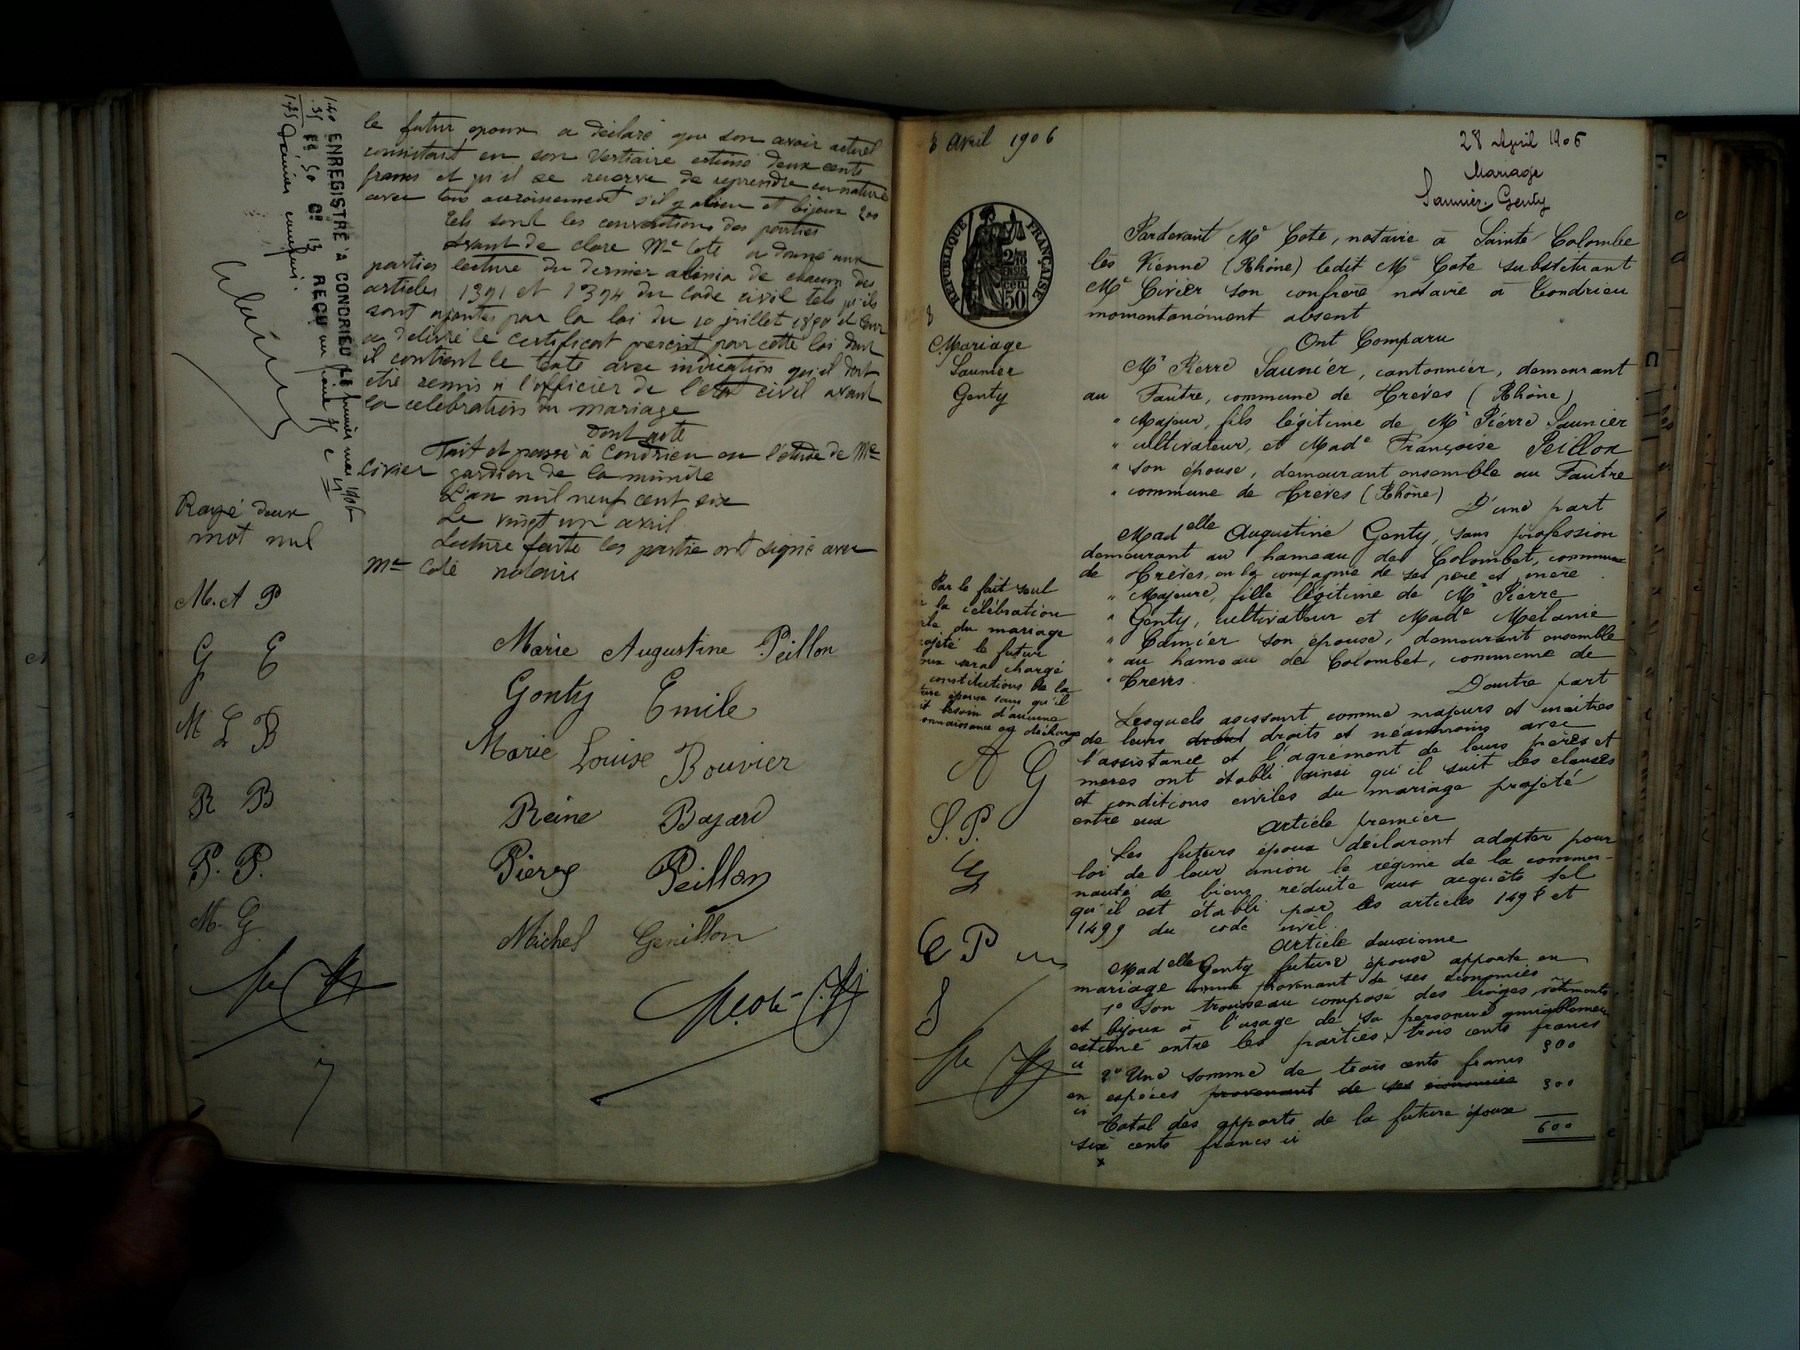 le futur epoux a déclaré que son avoir actuel
consistait en son vestiaire estimé deux cents
francs et qu'il se reserve de reprendre en nature
avec tous accroissement s'il y a lieu et bijoux 200
Tels sont les conventions des parties
Avant de clore Me Cote a donné aux
parties lecture du dernier alinéa de chacun des
articles 1391 et 1394 du Code civil tels qu'ils
sont ajoutés par la loi du 10 juillet 1850 et leur
a delivré le certificat prescrit par cette loi dont
il contient le texte avec indication qu'il doit
être remis à l'officier de l'etat civil avant
la celebration du mariage
Dont acte
Fait et passé à Condrieu en l'etude de Me
Civier gardien de la minute
L'an mil neuf cent six
Le vingt un avril
Lecture faite les partie ont signé avec
Me Cote notaire
ENREGISTRÉ A CONDRIEU LE premier mai 1906
Fo 50 Co 13 REÇU un franc
Rayé deux
mot nul
M. A P
G E
M L B
R B
P. P.
M. G
Marie Augustine Peillon
Gonty Emile
Marie Louise Bouvier
Reine Bajard
Pierre Peillon
Michel Genillon
8 avril 1906
RÉPUBLIQUE FRANÇAISE
2/10es
EN SUS
50
Mariage
Saunier
Genty
Par le fait seul
la célébration
du mariage
le futur
sera chargé
constitutions de la
épouse sans qu'il
besoin d'aucune
A G
S. P.
G
C P
28 April 1906
Mariage
Saunier. Genty
Pardevant Me Cote, notaire à Sainte Colombe
lès Vienne (Rhône) ledit Me Cote substituant
Me Civier son confrère notaire à Condrieu
momentanément absent
Ont Comparu
Mr Pierre Saunier, cantonnier, demeurant
au Fautre, commune de Trèves (Rhône)
" Majeur, fils légitime de Mr Pierre Saunier
" cultivateur, et Made Françoise Peillon
" son épouse, demeurant ensemble au Fautre
" commune de Trèves (Rhône)
D'une part
Madelle Augustine Genty, sans profession
demeurant au hameau de Colombet, commune
de Trèves, en la compagnie de ses père et mère
" Majeure, fille légitime de Mr Pierre
" Genty, cultivateur et Made Mélanie
" Camier son épouse, demeurant ensemble
" au hameau de Colombet, commune de
" Trèves
D'autre part
Lesquels agissant comme majeurs et maîtres
de leurs droits et néanmoins avec
l'assistance et l'agrément de leurs pères et
mères ont établi ainsi qu'il suit les clauses
et conditions civiles du mariage projeté
entre eux
Article premier
Les futurs époux déclarent adopter pour
loi de leur union le régime de la commu-
nauté de biens réduite aux acquêts tel
qu'il est établi par les articles 1498 et
1499 du code civil.
Article deuxième
Madelle Genty future épouse apporte en
mariage provenant de ses économies
1° Son trousseau composé des linges vêtements
et bijoux à l'usage de sa personne amiablement
estimé entre les parties, trois cents francs
ci 300
2° Une somme de trois cents francs
en espèces provenant de ses économies
ci 300
Total des apports de la future épouse
six cents francs ci 600